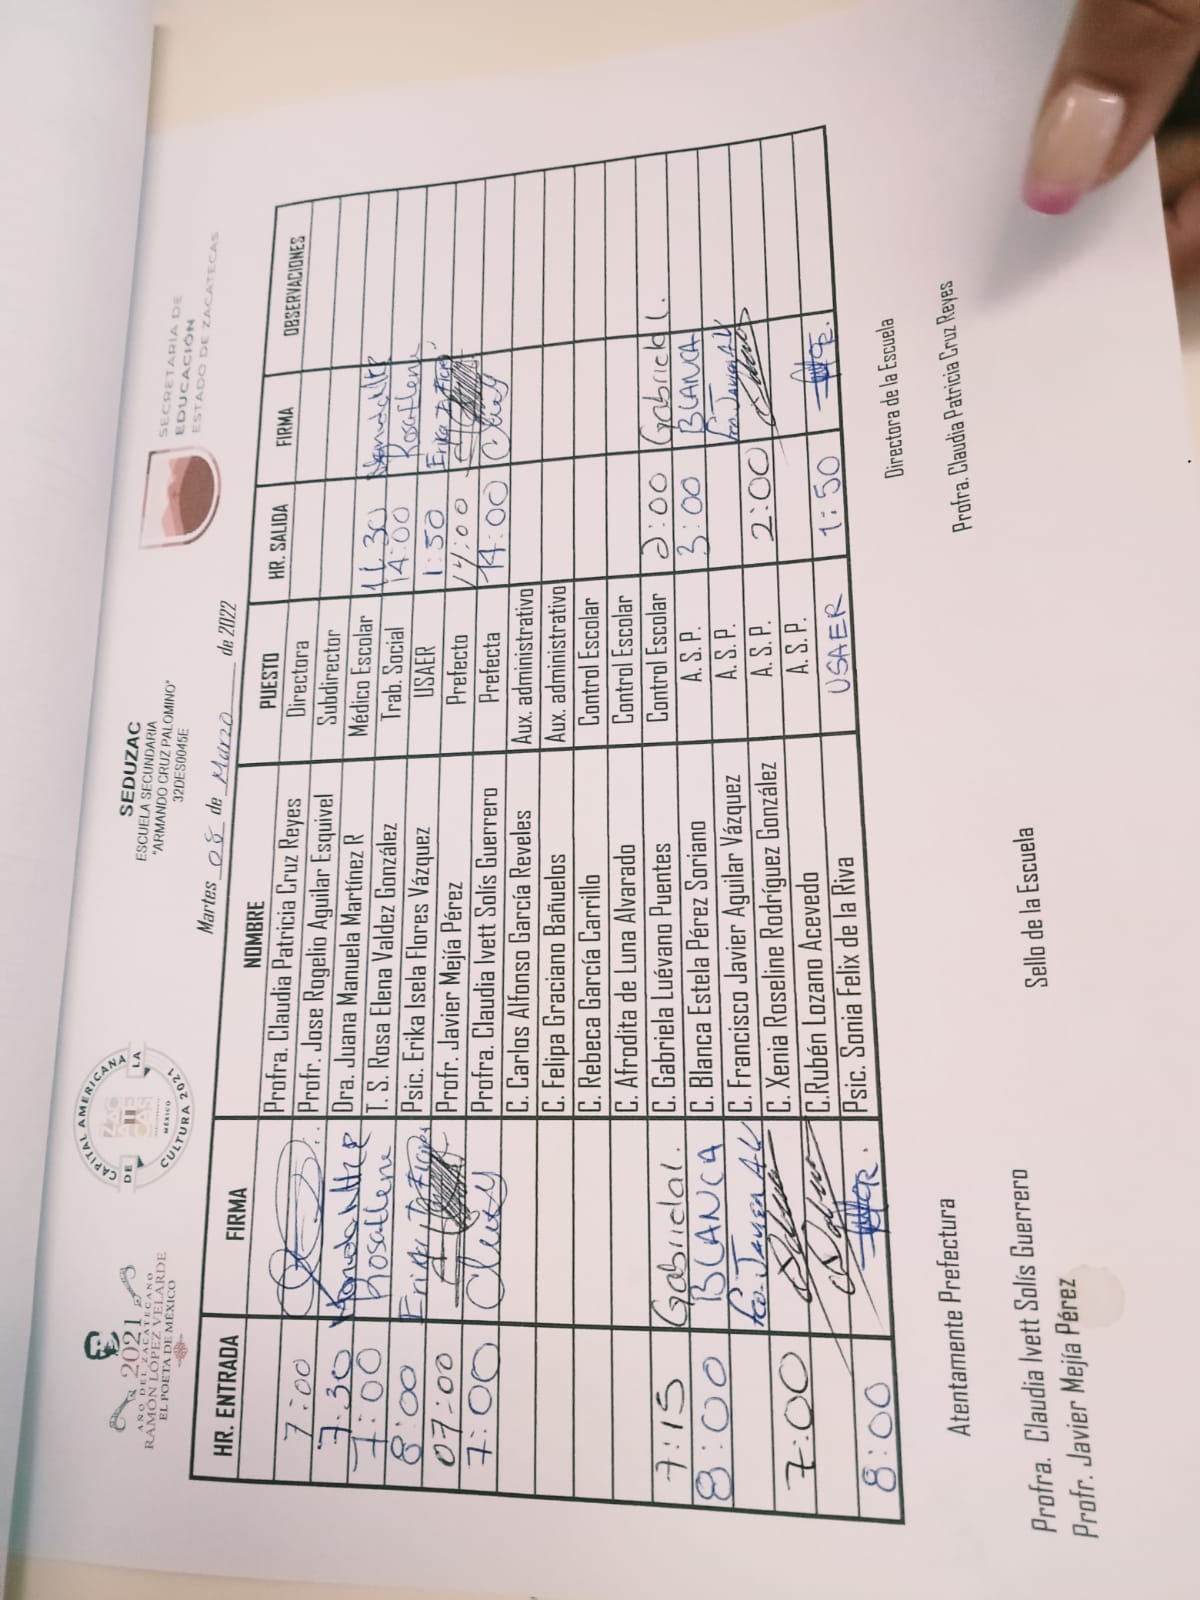 2021
AÑO DEL ZACATECANO
RAMÓN LÓPEZ VELARDE
EL POETA DE MÉXICO
CAPITAL AMERICANA
DE LA
MÉXICO
CULTURA 2021
SEDUZAC
ESCUELA SECUNDARIA
"ARMANDO CRUZ PALOMINO"
32DES0045E
SECRETARÍA DE
EDUCACIÓN
ESTADO DE ZACATECAS
Martes 08 de Marzo de 2022
HR. ENTRADA FIRMA NOMBRE PUESTO HR. SALIDA FIRMA OBSERVACIONES
Profra. Claudia Patricia Cruz Reyes Directora
7:00 Profr. Jose Rogelio Aguilar Esquivel Subdirector
7:30 Dra. Juana Manuela Martínez R Médico Escolar 11:30
7:00 Rosaelene T. S. Rosa Elena Valdez González Trab. Social 14:00 Rosaelene
8:00 Erika I Flores Psic. Erika Isela Flores Vázquez USAER 1:50 Erika I Flores
07:00 Profr. Javier Mejía Pérez Prefecto 14:00
7:00 Profra. Claudia Ivett Solís Guerrero Prefecta 14:00
C. Carlos Alfonso García Reveles Aux. administrativo
C. Felipa Graciano Bañuelos Aux. administrativo
C. Rebeca García Carrillo Control Escolar
C. Afrodita de Luna Alvarado Control Escolar
7:15 Gabriela L. C. Gabriela Luévano Puentes Control Escolar 2:00 Gabriela L.
8:00 BLANCA C. Blanca Estela Pérez Soriano A. S. P. 3:00 BLANCA
Fco. Javier A V C. Francisco Javier Aguilar Vázquez A. S. P. Fco. Javier A V
7:00 C. Xenia Roseline Rodríguez González A. S. P. 2:00
C.Rubén Lozano Acevedo A. S. P.
8:00 Psic. Sonia Felix de la Riva USAER 1:50
Atentamente Prefectura
Directora de la Escuela
Profra. Claudia Ivett Solís Guerrero
Profr. Javier Mejía Pérez
Sello de la Escuela
Profra. Claudia Patricia Cruz Reyes